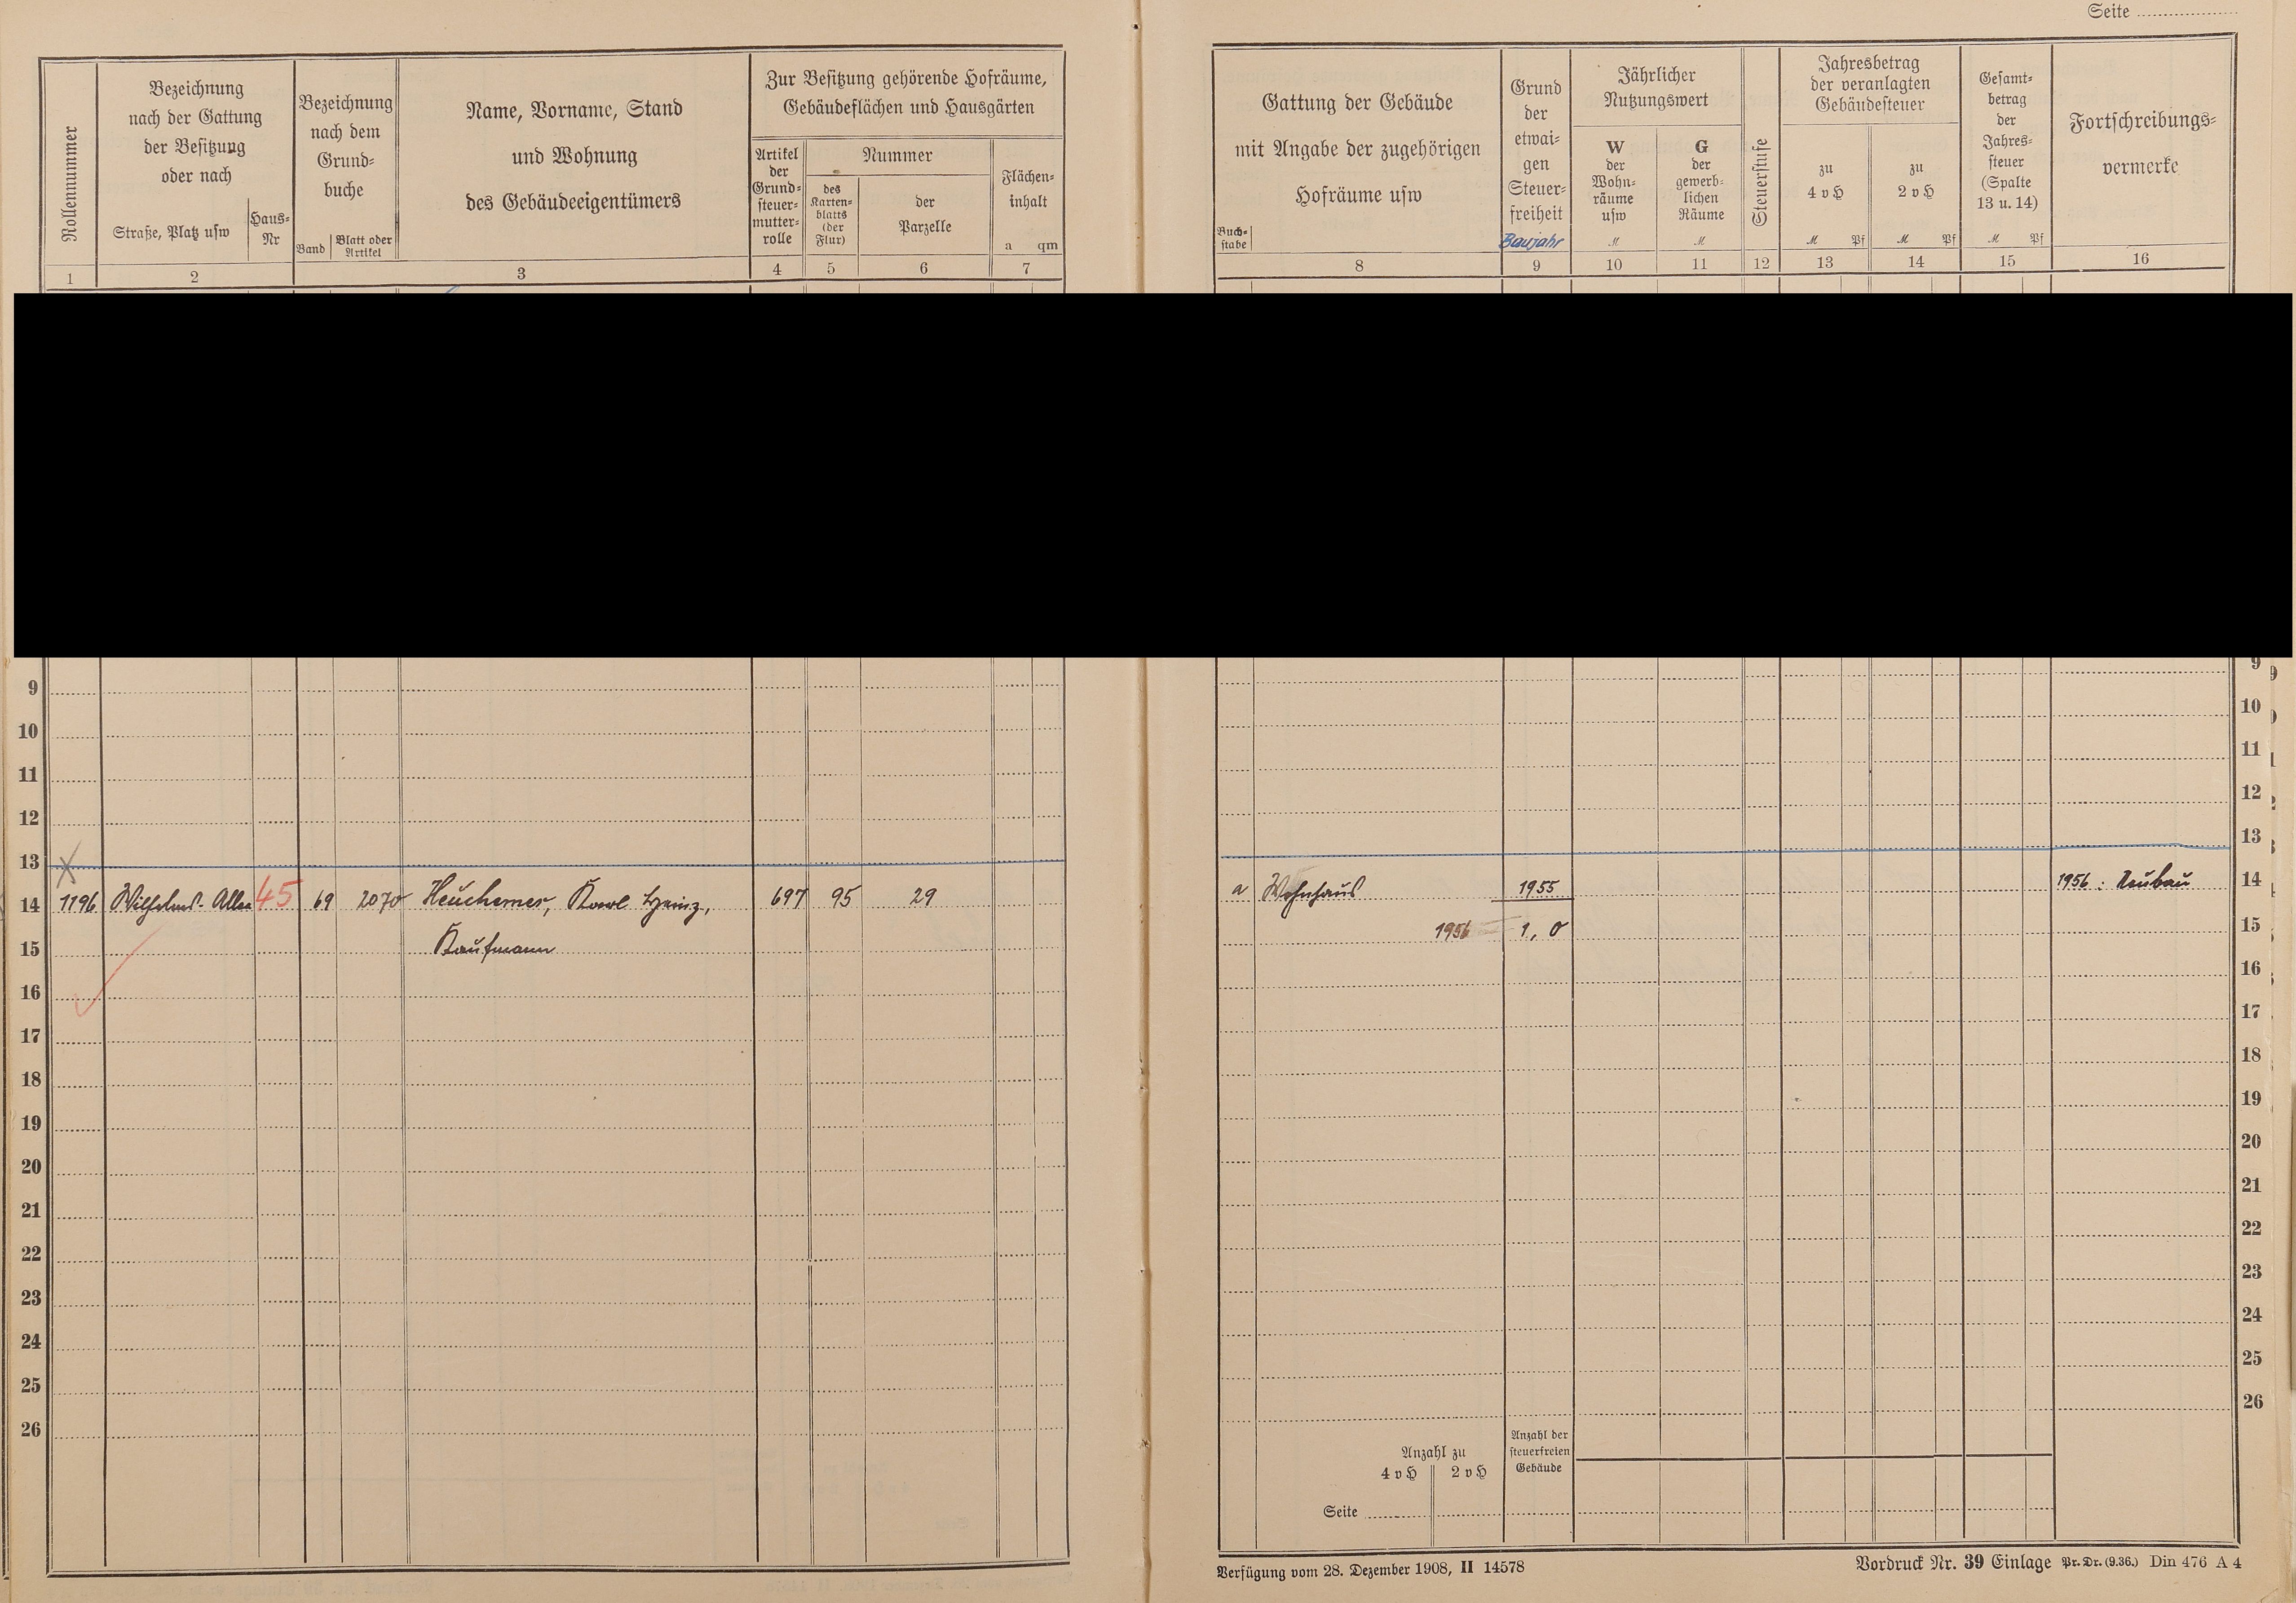 Seite
Rollennummer
Bezeichnung
nach der Gattung
der Besitzung
oder nach
Straße, Platz usw
Haus-
Nr
Bezeichnung
nach dem
Grund-
buche
Band
Blatt oder
Artikel
Name, Vorname, Stand
und Wohnung
des Gebäudeeigentümers
Zur Besitzung gehörende Hofräume,
Gebäudeflächen und Hausgärten
Artikel
der
Grund-
steuer-
mutter-
rolle
Nummer
des
Karten-
blatts
(der
Flur)
der
Parzelle
Flächen-
inhalt
a qm
1 2 3 4 5 6 7
Gattung der Gebäude
mit Angabe der zugehörigen
Hofräume usw
Buch-
stabe
Grund
der
etwai-
gen
Steuer-
freiheit
Baujahr
Jährlicher
Nutzungswert
W
der
Wohn-
räume
usw
M
G
der
gewerb-
lichen
Räume
M
Steuerstufe
Jahresbetrag
der veranlagten
Gebäudesteuer
zu
4 v H
M Pf
zu
2 v H
M Pf
Gesamt-
betrag
der
Jahres-
steuer
(Spalte
13 u. 14)
M Pf
Fortschreibungs-
vermerke
8 9 10 11 12 13 14 15 16
9 9
10 10
11 11
12 12
13 13
14 1196 Wilhelms-Allee 45 69 2070 Heuchemer, Karl Heinz, 697 95 29 a Wohnhaus 1955 1956: Neubau 14
15 Kaufmann 1956 1,0 15
16 16
17 17
18 18
19 19
20 20
21 21
22 22
23 23
24 24
25 25
26 26
Anzahl zu
4 v H 2 v H
Anzahl der
steuerfreien
Gebäude
Seite
Verfügung vom 28. Dezember 1908, II 14578
Vordruck Nr. 39 Einlage Pr. Dr. (9.36.) Din 476 A 4